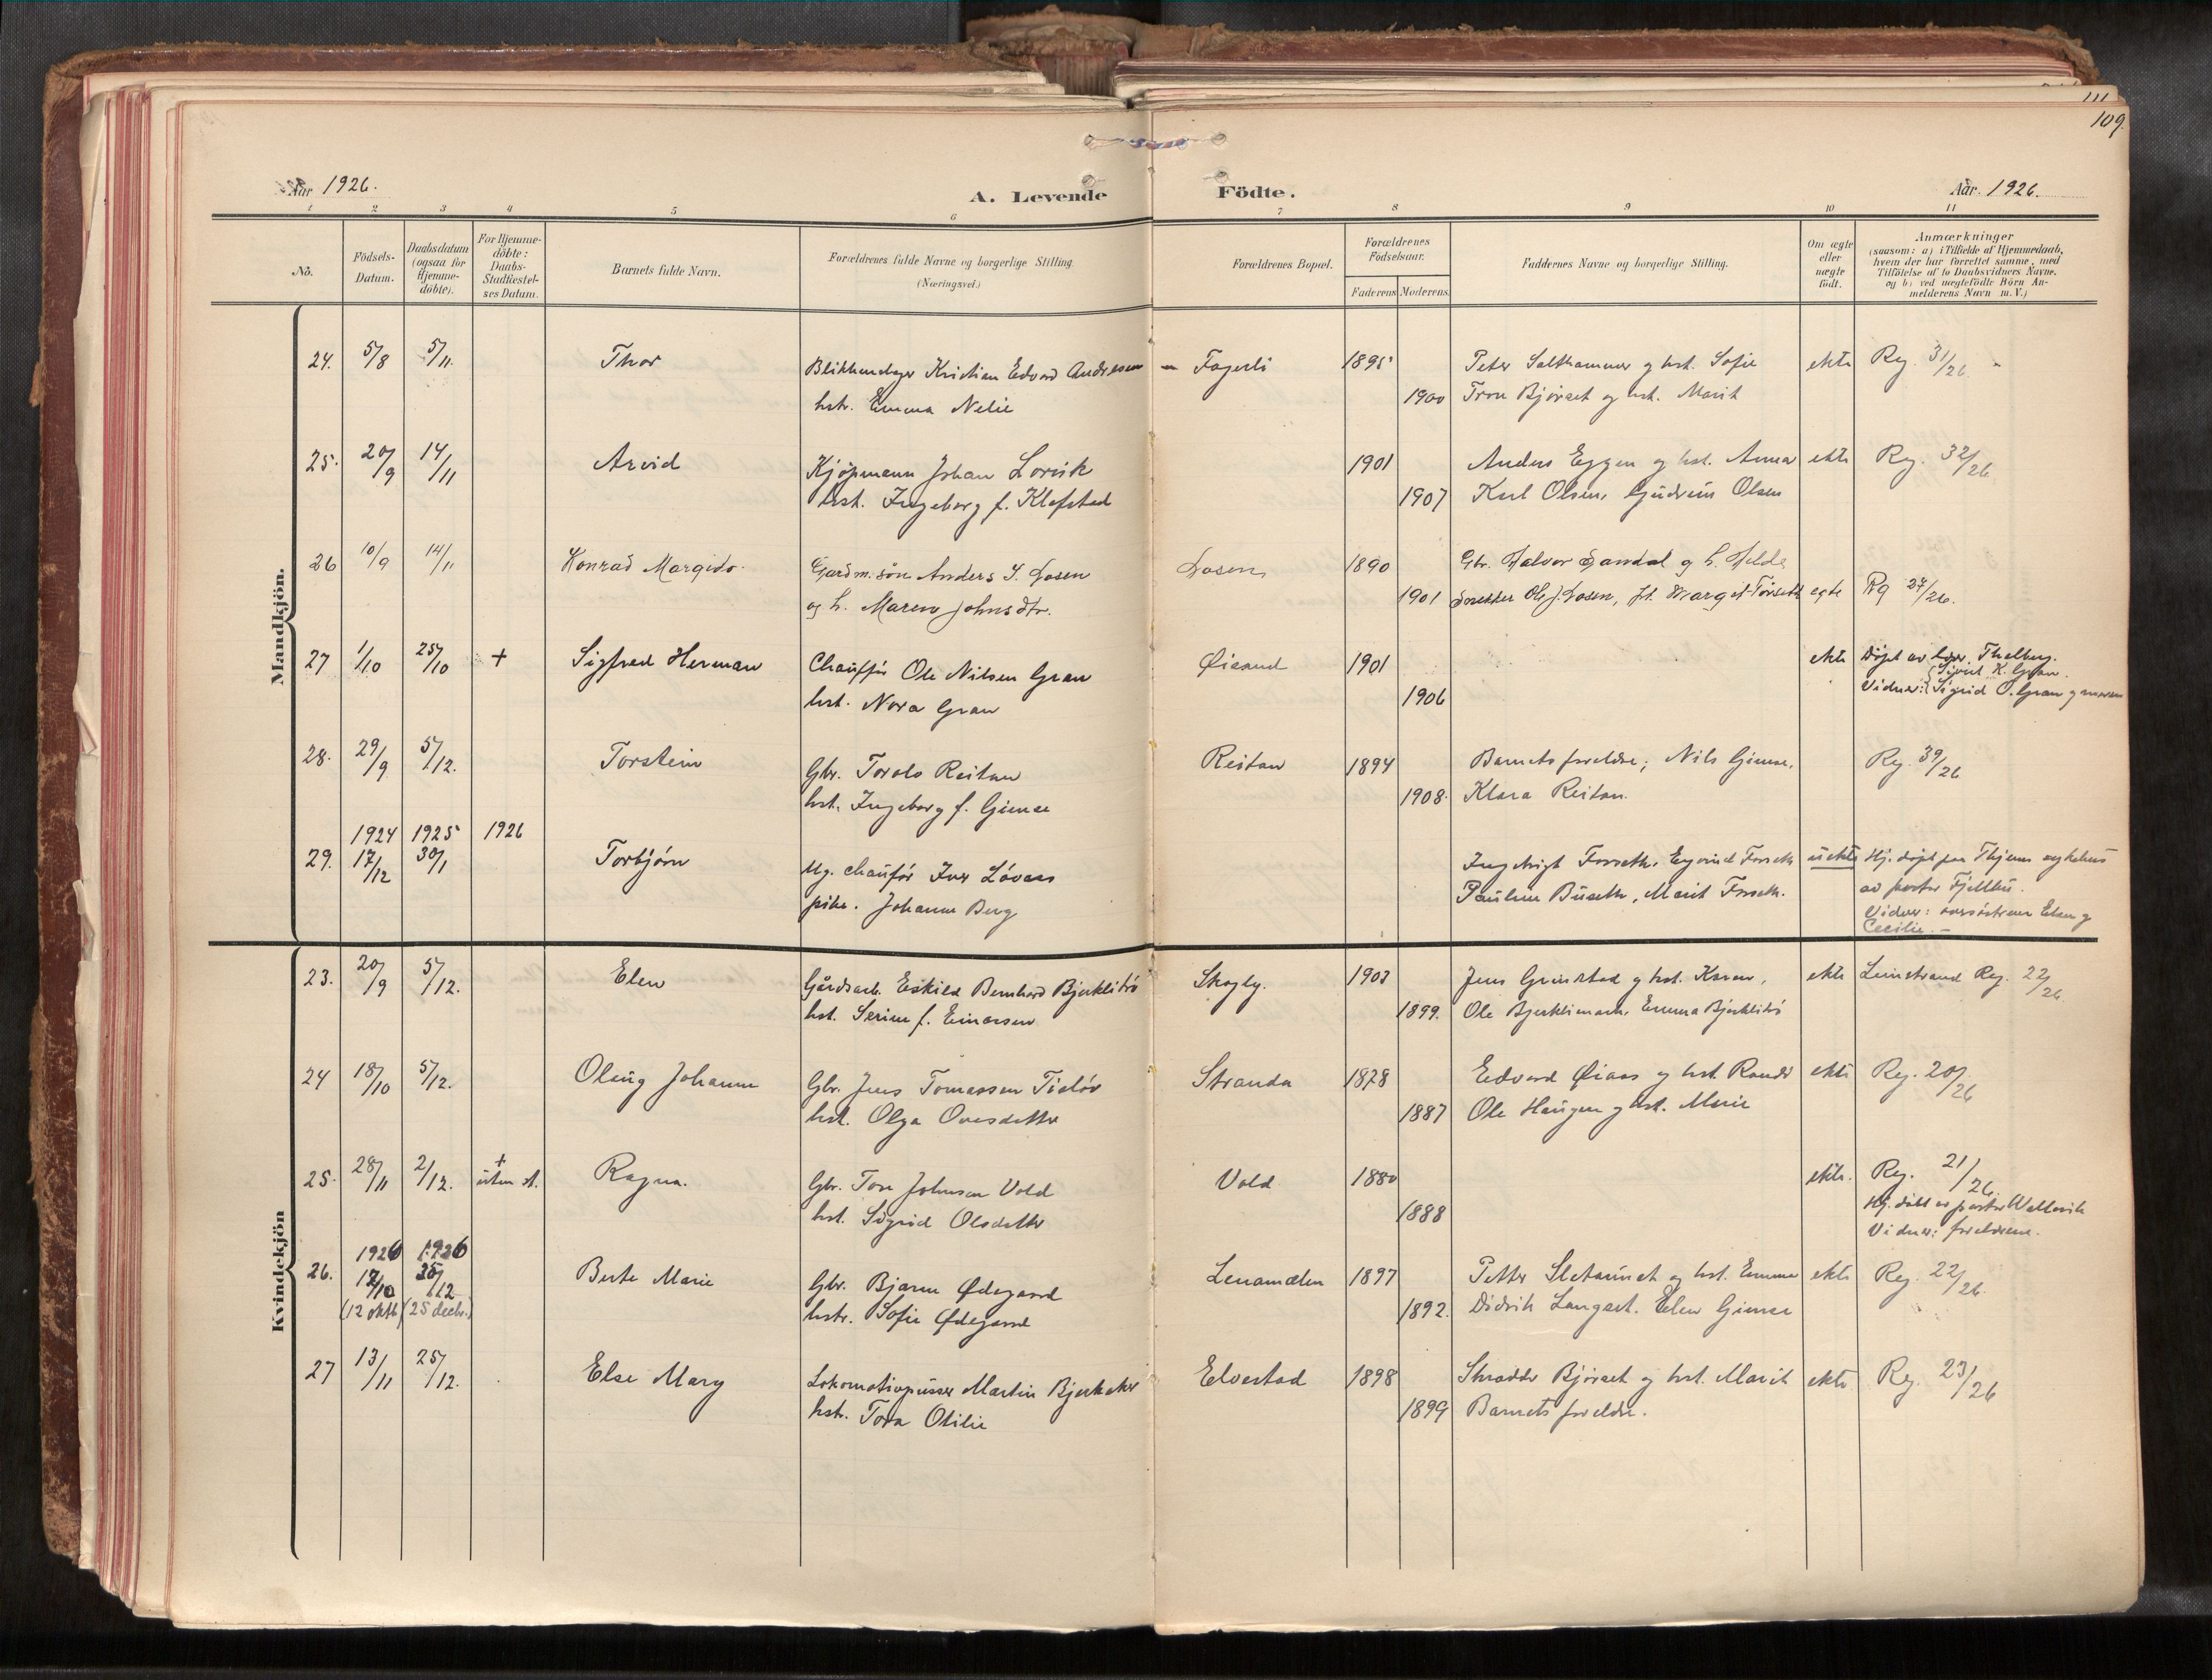 111
109.
Aar 1926.
A. Levende Födte.
Aar. 1926.
1 2 3 4 5 6 7 8 9 10 11
No.
Födsels-Datum.
Daabsdatum (ogsaa for Hjemme-döbte).
For Hjemme-döbte: Daabs-Stadfæstel-ses Datum.
Barnets fulde Navn.
Forældrenes fulde Navne og borgerlige Stilling.
(Næringsvei.)
Forældrenes Bopæl.
Forældrenes Födselsaar.
Faderens Moderens
Faddernes Navne og borgerlige Stilling.
Om ægte eller uægte födt.
Anmærkninger
(saasom: a) i Tilfælde af Hjemmedaab,
hvem der har forrettet samme, med
Tilföielse af to Daabsvidners Navne.
og b) ved uægtefödte Börn An-
melderens Navn m. V.)
Mandkjön.
24. 5/8 5/11. Thor Kristian Edvard Andresen Fagerli 1895 Peter Salthammer og hst. Sofie ekte Reg. 31/26.
hstr. Emma Nelie 1900 Tron Bjørset og hst. Marit
25. 20/9 14/11 Arvid Kjøpmann Johan Lorvik 1901 Anders Eggen og hst. Anna ekte Reg. 32/26
hst. Ingeborg f. Klefstad 1907 Karl Olsen, Gudrun Olsen
26 10/9 14/11 Konrad Margido. Gardm. søn Anders J. Losen Losen 1890 Gbr. Halvor Sandal og h.
og h. Maren Johnsdtr. 1901 Ole J. Losen, Margit egte Rg 27/26.
27 1/10 25/10 + Sigfred Herman Chauffør Ole Nilsen Gran Øisand 1901 ekte Døpt av Thalberg.
Sigrid K. Gran.
hst. Nora Gran 1906 Vidner: Sigrid O. Gran
28. 29/9 5/12. Torstein Gbr. Torolv Reitan Reitan 1894 Barnets foreldre; Nils Gimse, Reg. 39/26
hst. Ingeborg f. Gimse 1908. Klara Reitan.
1924 1925 1926
29. 17/12 30/1 Torbjørn Ug. chaufør Iver Løvaas Forseth, Eyvind Forseth uekte Hj. døpt paa sykehus
pike. Johanne Berg Buseth, Marit Forseth. av pastor
Vidner:
Cecilie. –
Kvindekjön
23. 20/9 5/12. Elen Gårdsarb. Eskild Bernhard Skogly. 1903 Jens Grinstad og hst. Karen, ekte Leinstrand Reg. 22/26
hst. Serine f. Einarsen 1899. Ole Emma
24 18/10 5/12. Olaug Johanne Gbr. Jens Tomassen Stranda 1878 Edvard Øiaas og hst. Randi ekte Reg. 20/26
hst. Olga Ovesdatter 1887 Ole Haugen og hst. Marie
+
25. 28/11 2/12. uten st. Ragna. Gbr. Tore Johnsen Vold Vold 1880 ekte. Reg. 21/26.
Hj. døbt av pastor
hst. Sigrid Olsdatter 1888 Vidner: foreldrene.
1926 1926
26. 12/10 25/12 Berte Marie Gbr. Bjarne Ødegaard Lenamælen 1897 Petter og hst. Emma ekte Reg. 22/26.
(12 oktb) (25 decbr.) hstr. Sofie Ødegaard 1892. Didrik Langset. Elen Gimse
27 13/11 25/12. Else Mary Lokomotivpusser Martin Elvestad 1898 Bjørset og hst. Marit ekte Reg. 23/26
hstr. Tora Otilie 1899 Barnets foreldre.